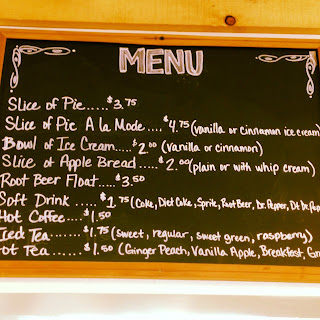 MENU
Slice of Pie.....$3.75
Slice of Pie A la Mode....$4.75 (vanilla or cinnamon ice cream)
Bowl of Ice Cream...$2.00 (vanilla or cinnamon)
Slice of Apple Bread...$2.00 (plain or with whip cream)
Root Beer Float...$3.50
Soft Drink ....$1.75 (Coke, Diet Coke, Sprite, Root Beer, Dr. Pepper, Dt Dr. Pep
Hot Coffee....$1.50
Iced Tea.....$1.75 (sweet, regular, sweet green, raspberry)
ot Tea .....$1.50 (Ginger Peach, Vanilla Apple, Breakfast,